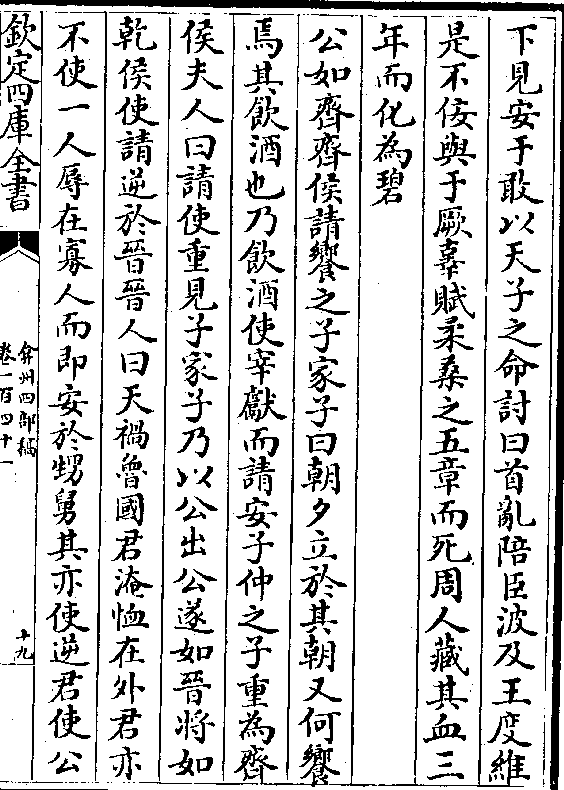 下見安于敢以天子之命討曰首亂陪臣波及王度維
是不佞與于厥辜賦柔桑之五章而死周人藏其血三
年而化為碧
公如齊齊侯請饗之子家子曰朝夕立於其朝又何饗
焉其飲酒也乃飲酒使宰獻而請安子仲之子重為齊
侯夫人曰請使重見子家子乃以公出公遂如晉將如
乾侯使請逆於晉晉人曰天禍魯國君淹恤在外君亦
不使一人辱在寡人而即安於甥舅其亦使逆君使公
欽定四庫全書
弇州四部稿
卷一百四十一
十九